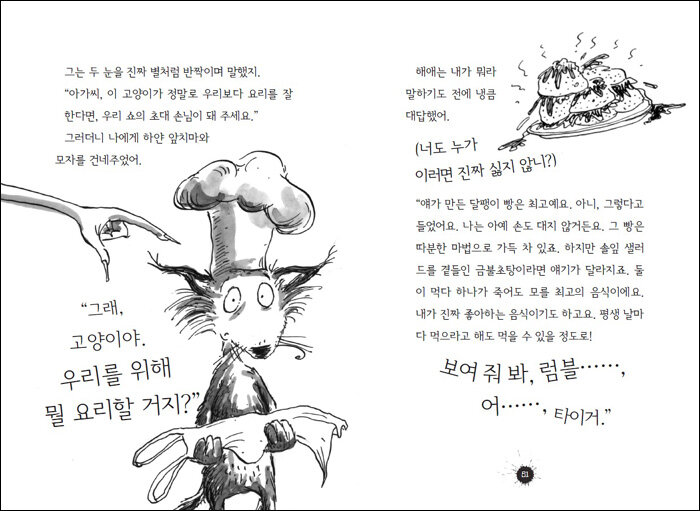 그는 두 눈을 진짜 별처럼 반짝이며 말했지.
“아가씨, 이 고양이가 정말로 우리보다 요리를 잘
한다면, 우리 쇼의 초대 손님이 돼 주세요.”
그러더니 나에게 하얀 앞치마와
모자를 건네주었어.
“그래,
고양이야.
우리를 위해
뭘 요리할 거지?”
해애는 내가 뭐라
말하기도 전에 냉큼
대답했어.
(너도 누가
이러면 진짜 싫지 않니?)
“얘가 만든 달팽이 빵은 최고예요. 아니, 그렇다고
들었어요. 나는 아예 손도 대지 않거든요. 그 빵은
따분한 마법으로 가득 차 있죠. 하지만 솔잎 샐러
드를 곁들인 금불초탕이라면 얘기가 달라지죠. 둘
이 먹다 하나가 죽어도 모를 최고의 음식이에요.
내가 진짜 좋아하는 음식이기도 하고요. 평생 날마
다 먹으라고 해도 먹을 수 있을 정도로!
보여 줘 봐, 럼블……,
어……, 타이거.”
51